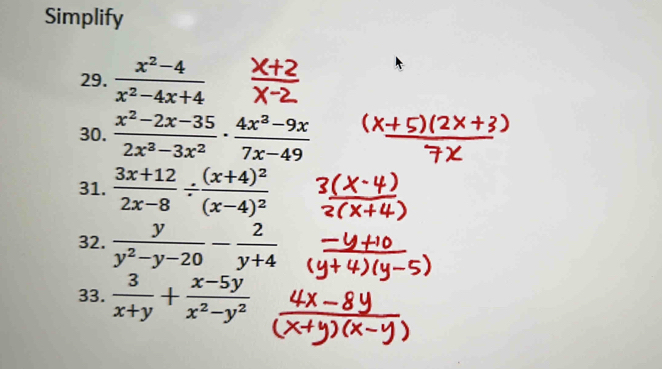 Simplify
29. (x²−4)/(x²−4x+4) (x+2)/(x-2)
30. (x²−2x−35)/(2x³−3x²) · (4x³−9x)/(7x−49) ((x+5)(2x+3))/(7x)
31. (3x+12)/(2x−8) ÷ (x+4)²/(x−4)² 3(x-4)/2(x+4)
32. y/(y²−y−20) − 2/(y+4) (-y+10)/((y+4)(y-5))
33. 3/(x+y) + (x−5y)/(x²−y²) (4x-8y)/((x+y)(x-y))